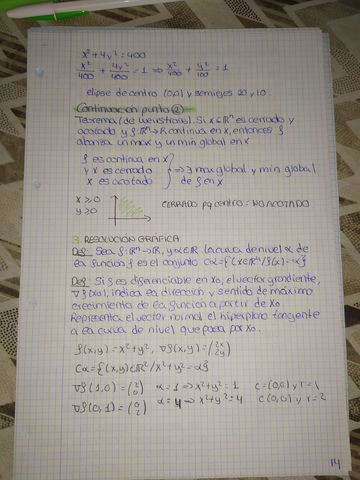 x² + 4y² = 400
x²/400 + 4y²/400 = 1 ⇒ x²/400 + y²/100 = 1
elipse de centro (0,0) y semiejes 20 y 10.
Continuación punto ②
Teorema (de weierstrass). Si X⊂ℝⁿ es cerrado y
acotado y f: ℝⁿ→ℝ continua en X, entonces f
alcanza un max y un min global en X
f es continua en X
y X es cerrado ⇒ ∃ max global y min global
X es acotado de f en X
x ≥ 0
y ≥ 0
CERRADO pq contro = NO ACOTADO
3. RESOLUCIÓN GRÁFICA
Def: Sea f: ℝⁿ→ℝ, y α∈ℝ la curva de nivel α de
la función f es el conjunto Cα = {x∈ℝⁿ / f(x) = α}
Def: Si f es diferenciable en X₀, el vector gradiente,
∇f(x₀), indica la dirección y sentido de máximo
crecimiento de la función a partir de X₀
Representa el vector normal al hiperplano tangente
a la curva de nivel que pasa por X₀.
f(x,y) = x² + y², ∇f(x,y) = (2x 2y)
Cα = {(x,y)∈ℝ² / x² + y² = α}
∇f(1,0) = (2 0) α = 1 ⇒ x² + y² = 1 C = (0,0) y r = 1
∇f(0,1) = (0 2) α = 4 ⇒ x² + y² = 4 C (0,0) y r = 2
14